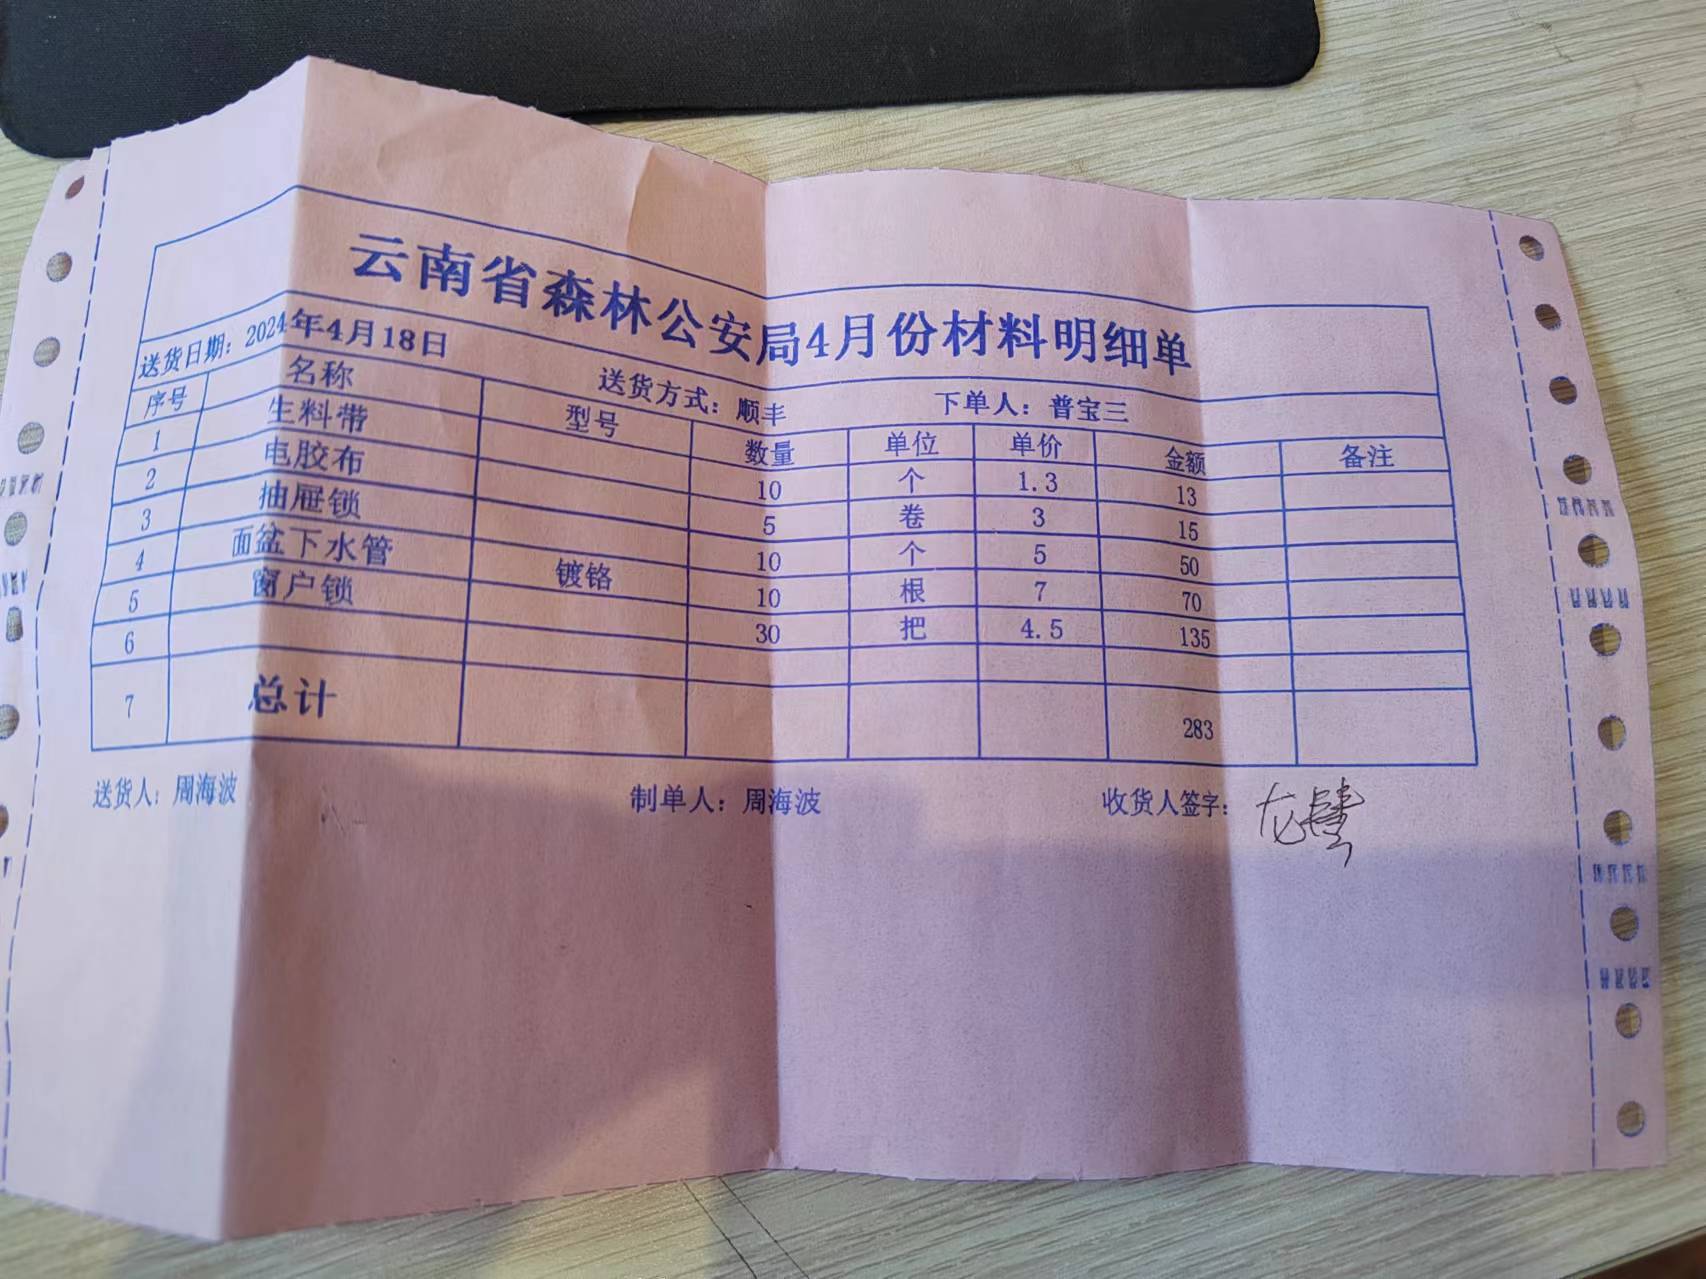 云南省森林公安局4月份材料明细单
送货日期：2024年4月18日 送货方式：顺丰 下单人：普宝三
序号 名称 型号 数量 单位 单价 金额 备注
1 生料带 10 个 1.3 13
2 电胶布 5 卷 3 15
3 抽屉锁 10 个 5 50
4 面盆下水管 镀铬 10 根 7 70
5 窗户锁 30 把 4.5 135
6
7 总计 283
送货人：周海波 制单人：周海波 收货人签字：